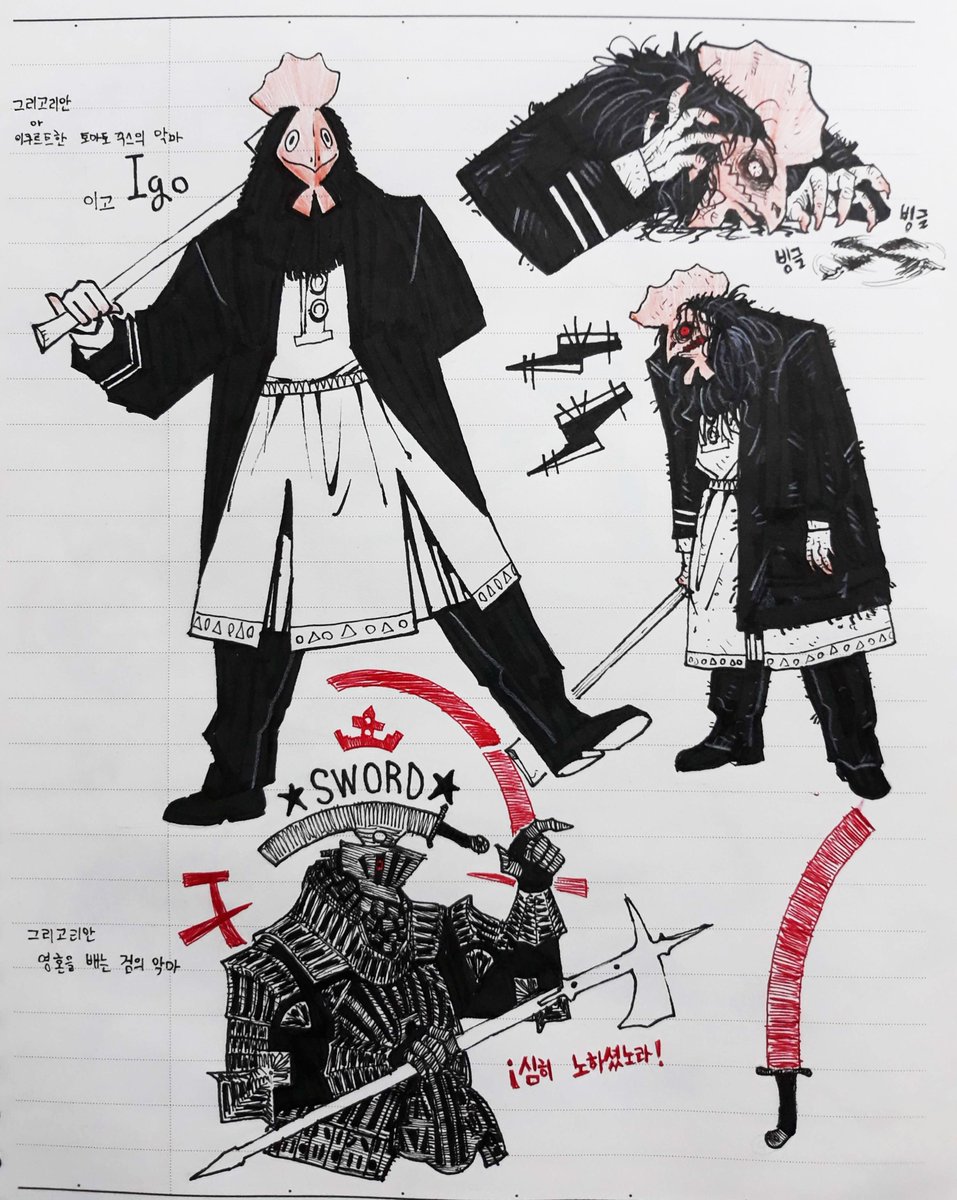 그리고리안
아
이쿠르트한 토마토 쥬스의 악마
이고 Igo
빙글
빙글
SWORD
그리고리안
영혼을 배는 검의 악마
¡심히 노하셨노라!